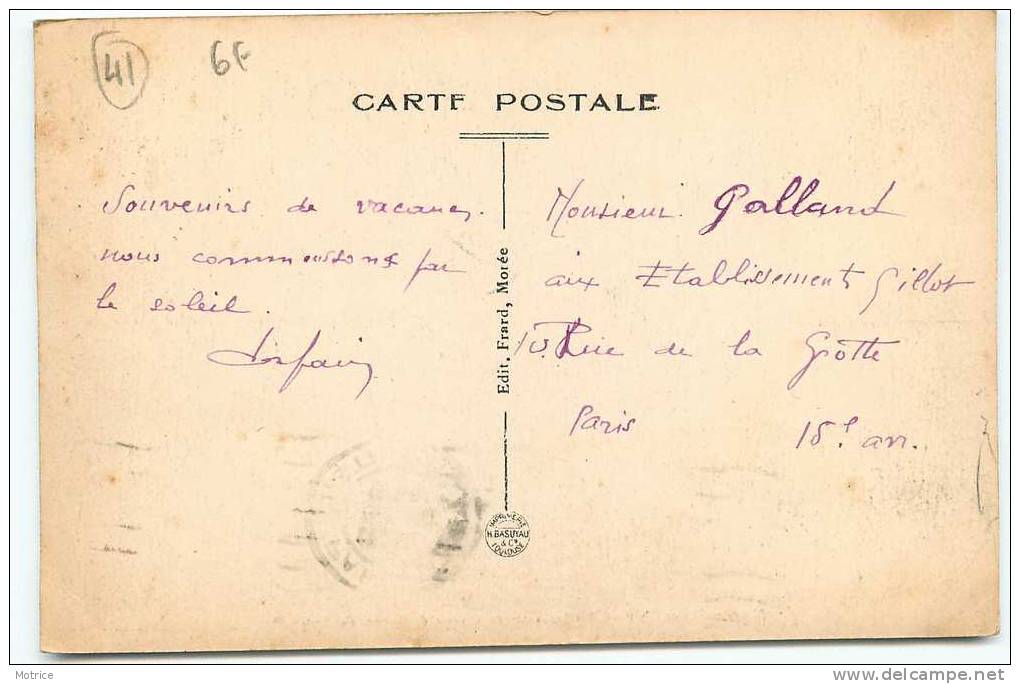 41
6F
CARTE POSTALE
Souvenirs de vacances.
nous commensons par
le soleil.
Monsieur Galland
aux Etablissements Gillot
Rue de la Grotte
Paris 15e arr.
Edit. Frard, Morée
IMPRIMERIE
H. BASUYAU
& Cie
TOULOUSE
Motrice
delcampe.net